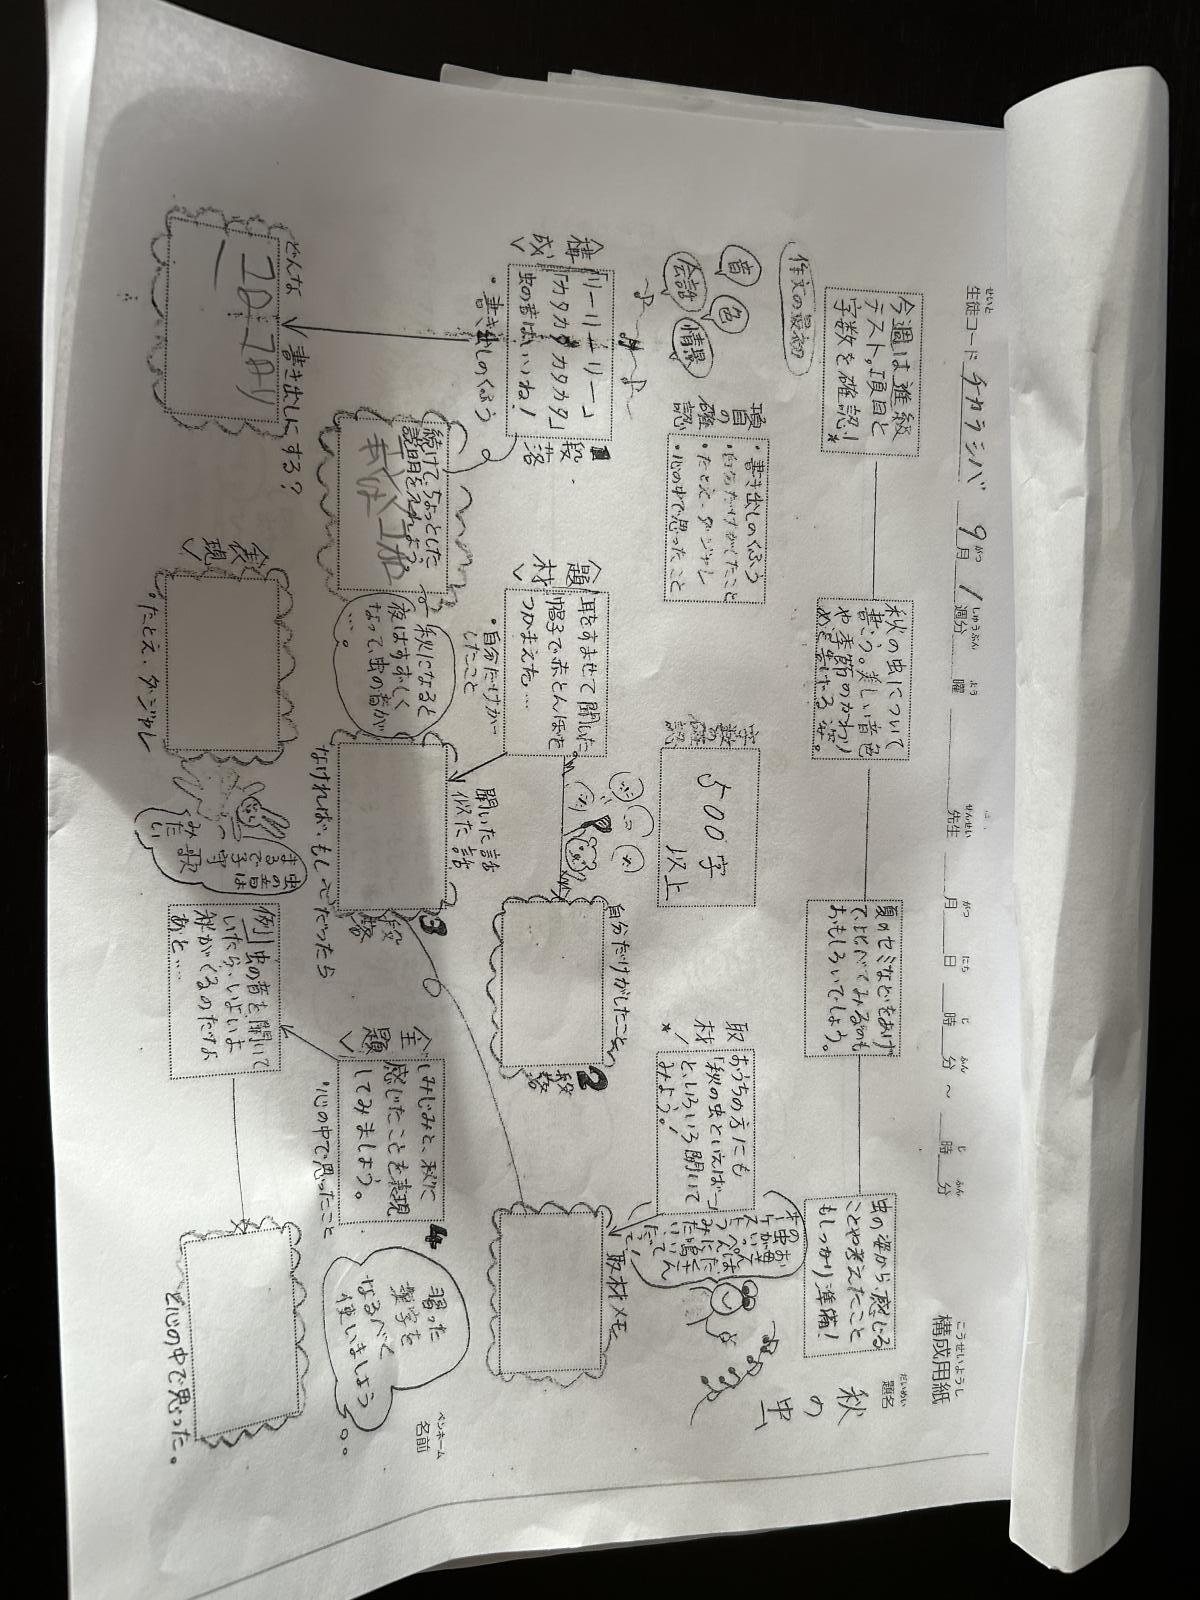 構成用紙
こうせいようし
題名
だいめい
秋の虫
名前
ペンネーム
せいと
生徒コード チカラシバ 9月 1週分 曜 先生 月 日 時 分 ~ 時 分
がつ しゅうぶん よう せんせい がつ にち じ ふん じ ふん
今週は進級
テスト。項目と
字数を確認!
秋の虫について
書こう。美しい音色
や季節のかわり
夏のセミなどをあげ
て比べてみるのも
おもしろいでしょう。
虫の姿から感じる
ことや考えたこと
もしっかり準備!
作文の最初
音
色
会話
情景
項目の確認
・書き出しのくふう
・自分だけがしたこと
・たとえ・ダジャレ
・心の中で思ったこと
字数の確認
500字
以上
取材
おうちの方にも
「秋の虫といえば…」
といろいろ聞いて
みよう。!
取材メモ
構成
「リーリーリーリー」
「カタカタカタカタ」
虫の音はいいね!
・書き出しのくふう
1段落
題材
耳をすませて聞いた。
帽子で赤とんぼを
つかまえた…
・自分だけが
したこと
自分だけがしたこと
2段落
続けて、ちょっとした
説明を入れよう。
秋になると
夜はすずしく
なって、虫の音が
…。
聞いた話
似た話
なければ、もし~だったら
3段落
主題
しみじみと、秋に
感じたことを表現
してみましょう。
・心の中で思ったこと
4
習った
漢字を
なるべく
使いましょう
どんな書き出しにする?
表現
・たとえ・ダジャレ
虫の音は
まるで子守
歌
みたい
例 虫の音を聞いて
いたら、いよいよ
秋がくるのだなよ
あと……
と心の中で思った。